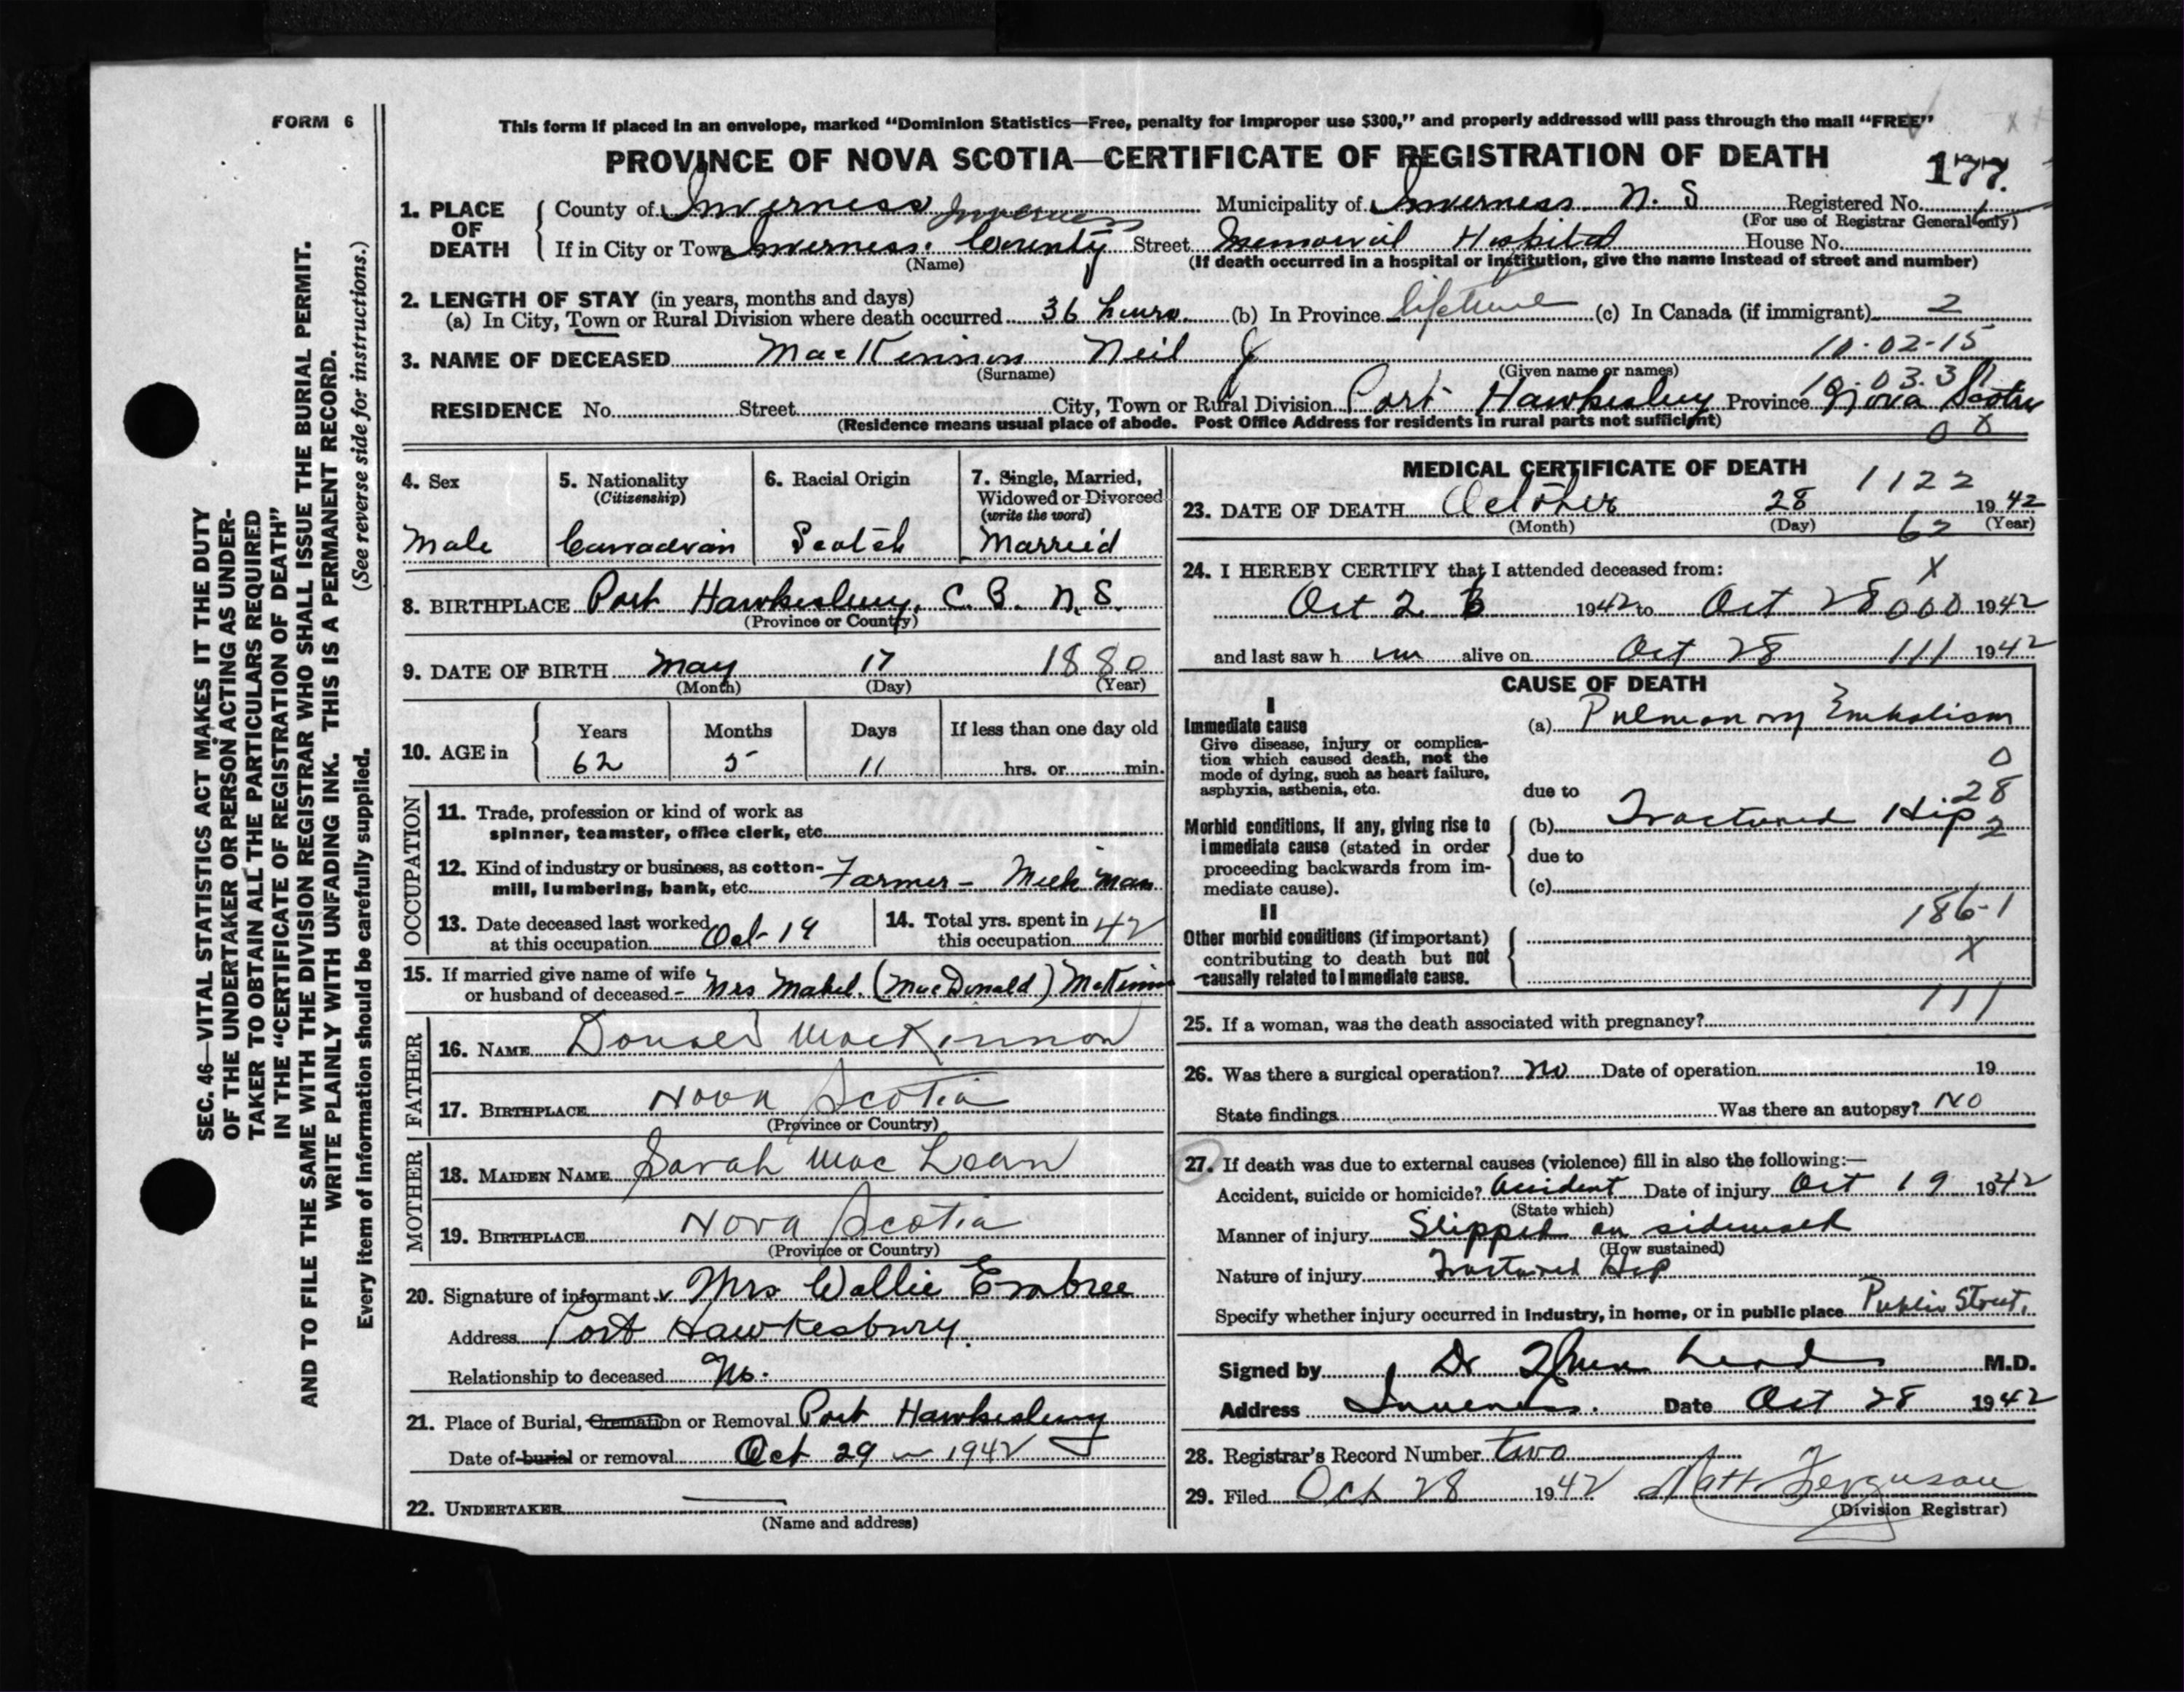 FORM 6
This form if placed in an envelope, marked “Dominion Statistics—Free, penalty for improper use $300,” and properly addressed will pass through the mail “FREE”
PROVINCE OF NOVA SCOTIA—CERTIFICATE OF REGISTRATION OF DEATH
177.
1. PLACE OF DEATH { County of Inverness Inverness Municipality of Inverness N. S Registered No.
(For use of Registrar General only)
If in City or Town Inverness. County Street Memorial Hospital House No.
(Name) (If death occurred in a hospital or institution, give the name instead of street and number)
2. LENGTH OF STAY (in years, months and days)
(a) In City, Town or Rural Division where death occurred 36 hours. (b) In Province lifetime (c) In Canada (if immigrant) 2
10-02-15
3. NAME OF DECEASED MacKinnon Neil J
(Surname) (Given name or names)
10.03.3
RESIDENCE No. Street City, Town or Rural Division Port Hawkesbury Province Nova Scotia
(Residence means usual place of abode. Post Office Address for residents in rural parts not sufficient)
0 X
4. Sex
Male
5. Nationality
(Citizenship)
Canadian
6. Racial Origin
Scotch
7. Single, Married,
Widowed or Divorced
(write the word)
Married
8. BIRTHPLACE Port Hawkesbury, C. B. N. S.
(Province or Country)
9. DATE OF BIRTH May 17 1880
(Month) (Day) (Year)
10. AGE in { Years Months Days If less than one day old
62 5 11 hrs. or min.
OCCUPATION
11. Trade, profession or kind of work as
spinner, teamster, office clerk, etc.
12. Kind of industry or business, as cotton-
mill, lumbering, bank, etc. Farmer - man
13. Date deceased last worked
at this occupation Oct 19
14. Total yrs. spent in
this occupation 42
15. If married give name of wife
or husband of deceased- Mrs Mabel. (MacDonald) McKinnon
FATHER
16. NAME Donald MacKinnon
17. BIRTHPLACE Nova Scotia
(Province or Country)
MOTHER
18. MAIDEN NAME Sarah Mac Lean
19. BIRTHPLACE Nova Scotia
(Province or Country)
20. Signature of informant Mrs Wallie Embree
Address Port Hawkesbury.
Relationship to deceased No.
21. Place of Burial, Cremation or Removal Port Hawkesbury
Date of burial or removal Oct 29 - 1942
22. UNDERTAKER
(Name and address)
MEDICAL CERTIFICATE OF DEATH
1122
23. DATE OF DEATH October 28 1942
(Month) (Day) 62 (Year)
24. I HEREBY CERTIFY that I attended deceased from:
X
Oct 2 6 1942 to Oct 28 000 1942
and last saw h im alive on Oct 28 111 1942
CAUSE OF DEATH
I
Immediate cause
Give disease, injury or complica-
tion which caused death, not the
mode of dying, such as heart failure,
asphyxia, asthenia, etc.
(a) Pulmonary Embolism
0
due to
28
Morbid conditions, if any, giving rise to
immediate cause (stated in order
proceeding backwards from im-
mediate cause).
(b) Fractured Hip
2
due to
(c)
186-1
II
Other morbid conditions (if important)
contributing to death but not
causally related to immediate cause.
X
111
25. If a woman, was the death associated with pregnancy?
26. Was there a surgical operation? No Date of operation 19
State findings Was there an autopsy? No
27. If death was due to external causes (violence) fill in also the following:—
Accident, suicide or homicide? Accident Date of injury Oct 19 1942
(State which)
Manner of injury Slipped on sidewalk
(How sustained)
Nature of injury Fractured Hip
Specify whether injury occurred in industry, in home, or in public place Public Street.
Signed by Dr M.D.
Address Inverness. Date Oct 28 1942
28. Registrar's Record Number two
29. Filed Oct 28 1942 Matt Ferguson
(Division Registrar)
SEC. 46—VITAL STATISTICS ACT MAKES IT THE DUTY
OF THE UNDERTAKER OR PERSON ACTING AS UNDER-
TAKER TO OBTAIN ALL THE PARTICULARS REQUIRED
IN THE “CERTIFICATE OF REGISTRATION OF DEATH”
AND TO FILE THE SAME WITH THE DIVISION REGISTRAR WHO SHALL ISSUE THE BURIAL PERMIT.
WRITE PLAINLY WITH UNFADING INK. THIS IS A PERMANENT RECORD.
Every item of information should be carefully supplied. (See reverse side for instructions.)